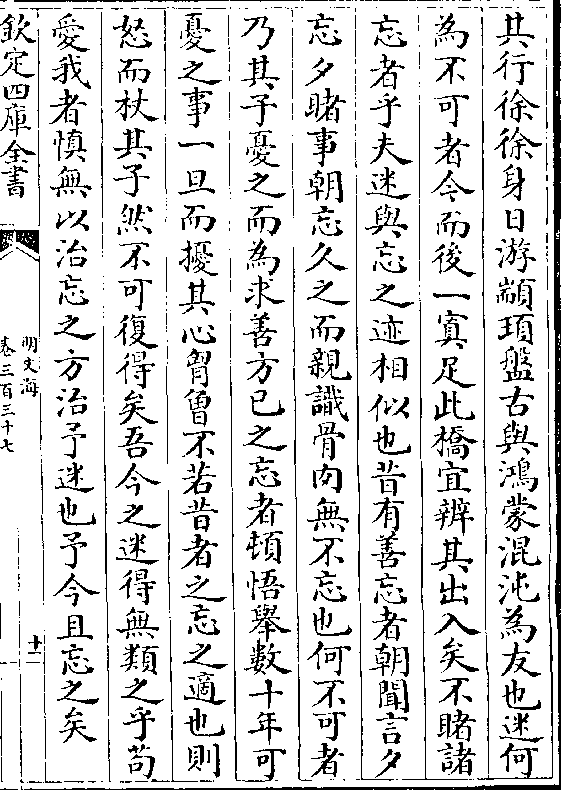 其行徐徐身日游顓頊盤古與鴻蒙混沌為友也迷何
為不可者今而後一寘足此橋宜辨其出入矣不睹諸
忘者乎夫迷與忘之迹相似也昔有善忘者朝聞言夕
忘夕睹事朝忘久之而親識骨肉無不忘也何不可者
乃其子憂之而為求善方已之忘者頓悟舉數十年可
憂之事一旦而擾其心胷曾不若昔者之忘之適也則
怒而杖其子然不可復得矣吾今之迷得無類之乎苟
愛我者慎無以治忘之方治予迷也予今且忘之矣
欽定四庫全書
明文海
卷三百三十七
十二